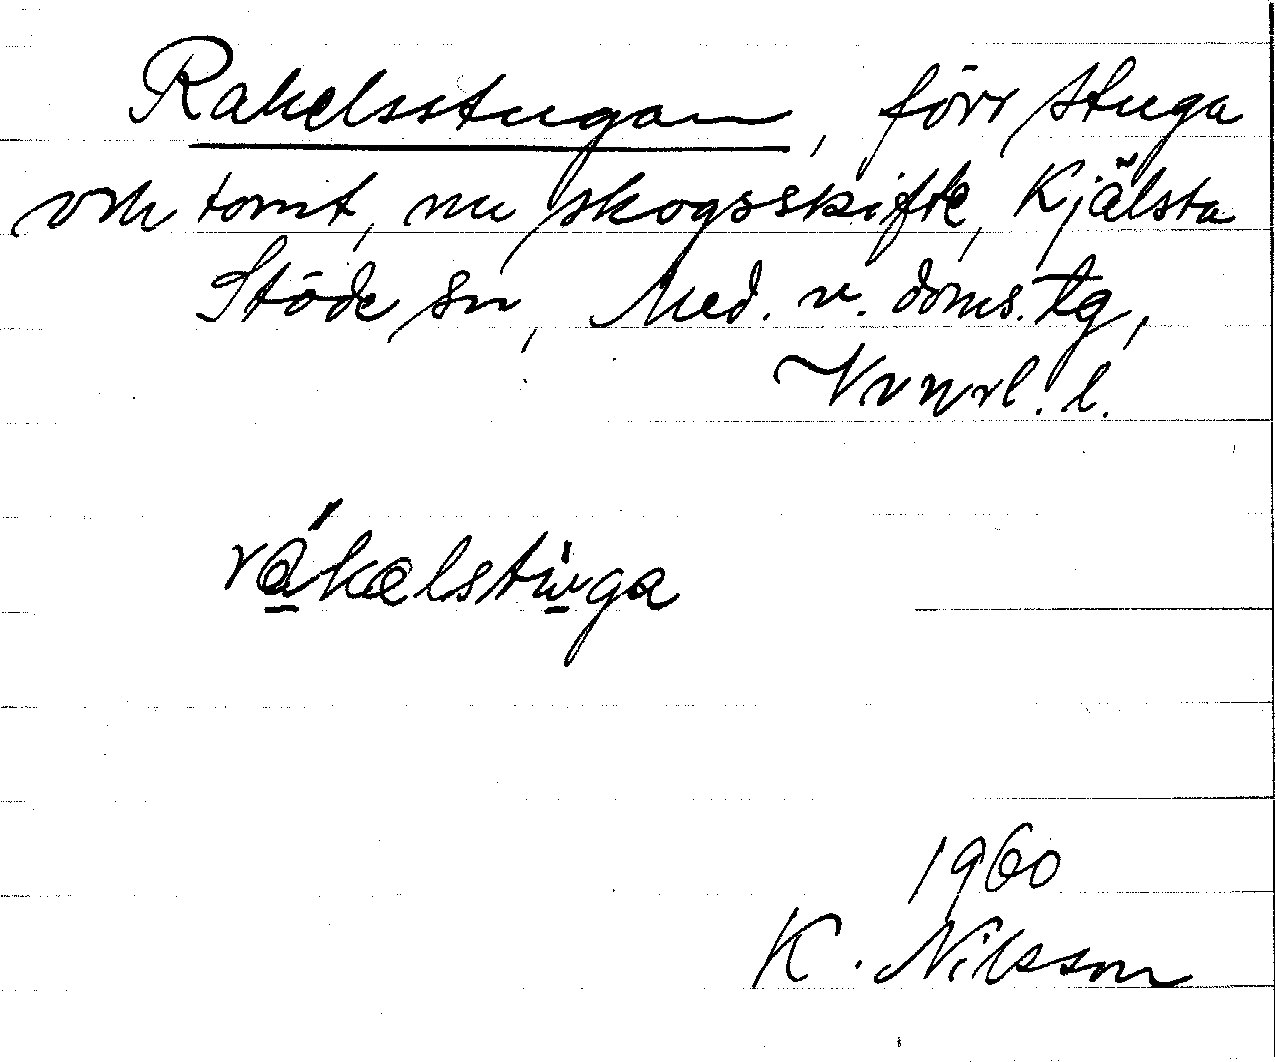 Rakelsstugan, förr stuga
och tomt, nu skogsskifte, Kjälsta
Stöde sn, Med. v. doms. tg,
Vvnrl. l.
rákelstùga
1960
K. Nilsson